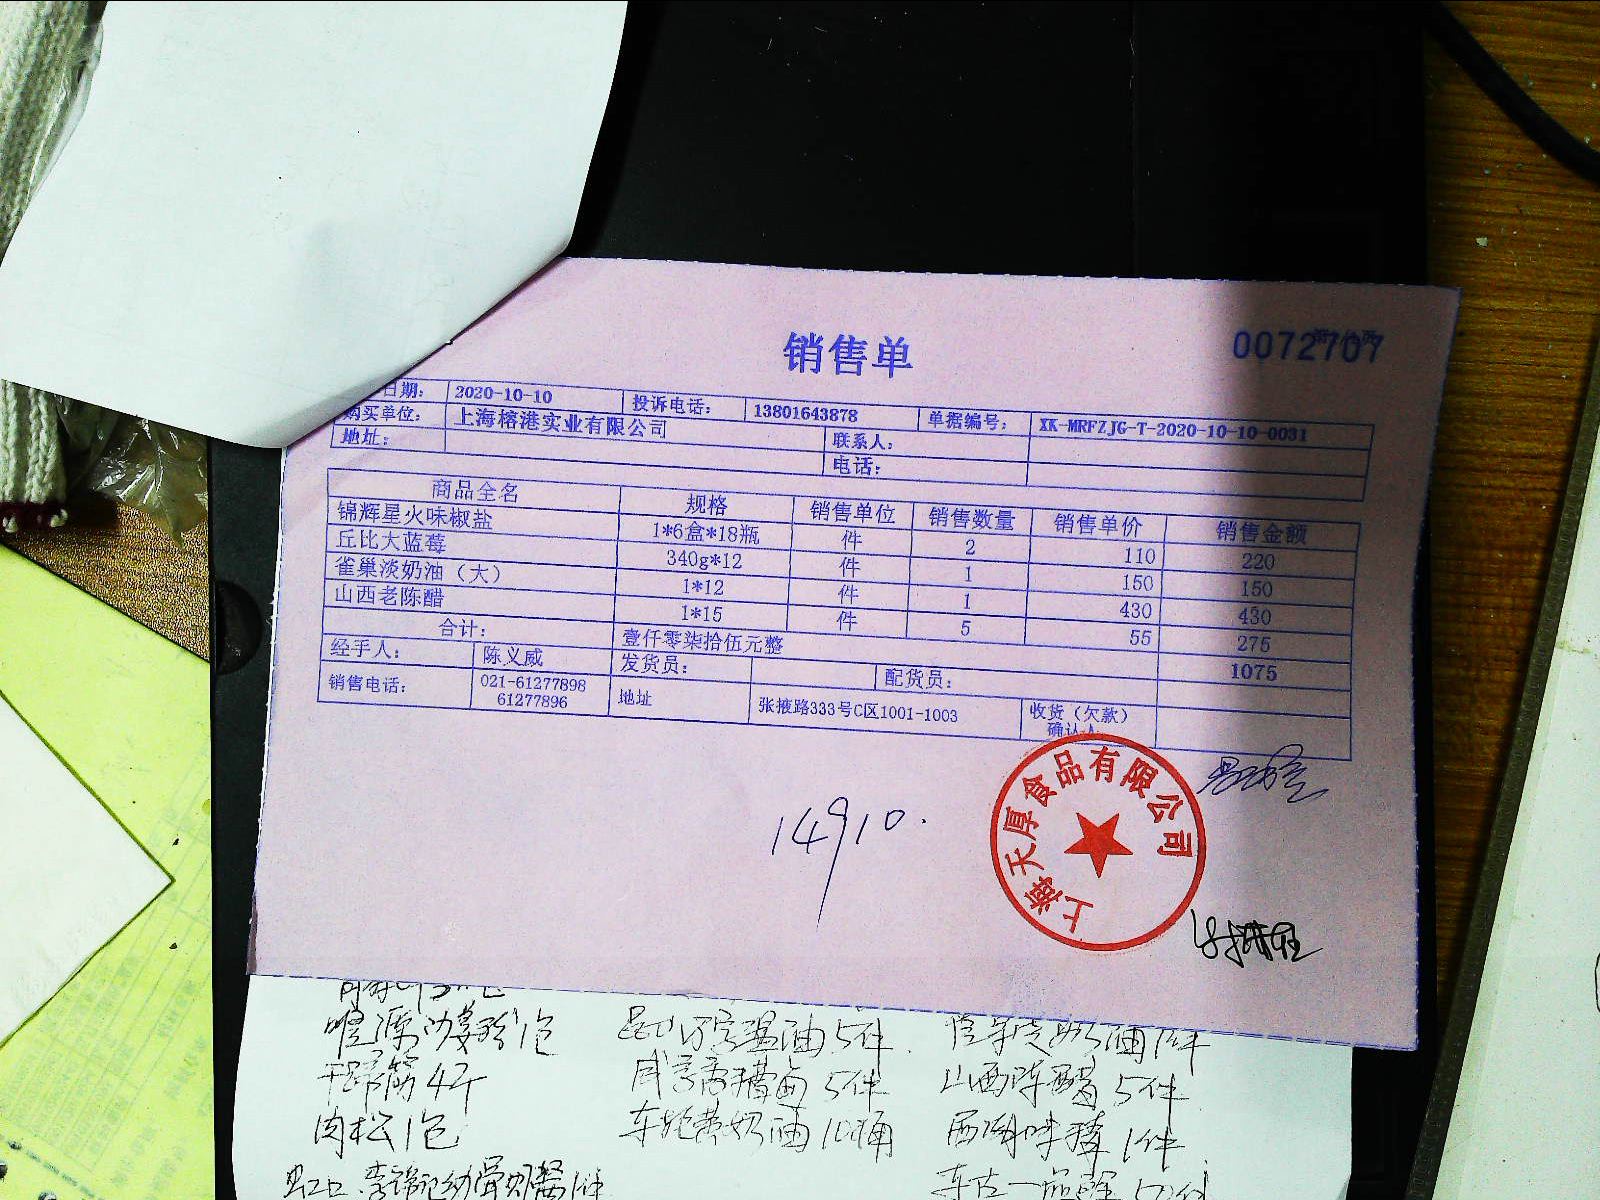 销售单
0072707
日期： 2020-10-10 投诉电话： 13801643878 单据编号： XK-MRFZJG-T-2020-10-10-0031
购买单位： 上海榕港实业有限公司 联系人：
地址： 电话：
商品全名 规格 销售单位 销售数量 销售单价 销售金额
锦辉星火味椒盐 1*6盒*18瓶 件 2 110 220
丘比大蓝莓 340g*12 件 1 150 150
雀巢淡奶油（大） 1*12 件 1 430 430
山西老陈醋 1*15 件 5 55 275
合计： 壹仟零柒拾伍元整 1075
经手人： 陈义威 发货员： 配货员：
销售电话： 021-61277898 地址 张掖路333号C区1001-1003 收货（欠款）
61277896 确认人
上海天厚食品有限公司
14910.
1包 5件 1件
干蹄筋4斤 5件 山西陈醋5件
肉松1包 10桶 1件